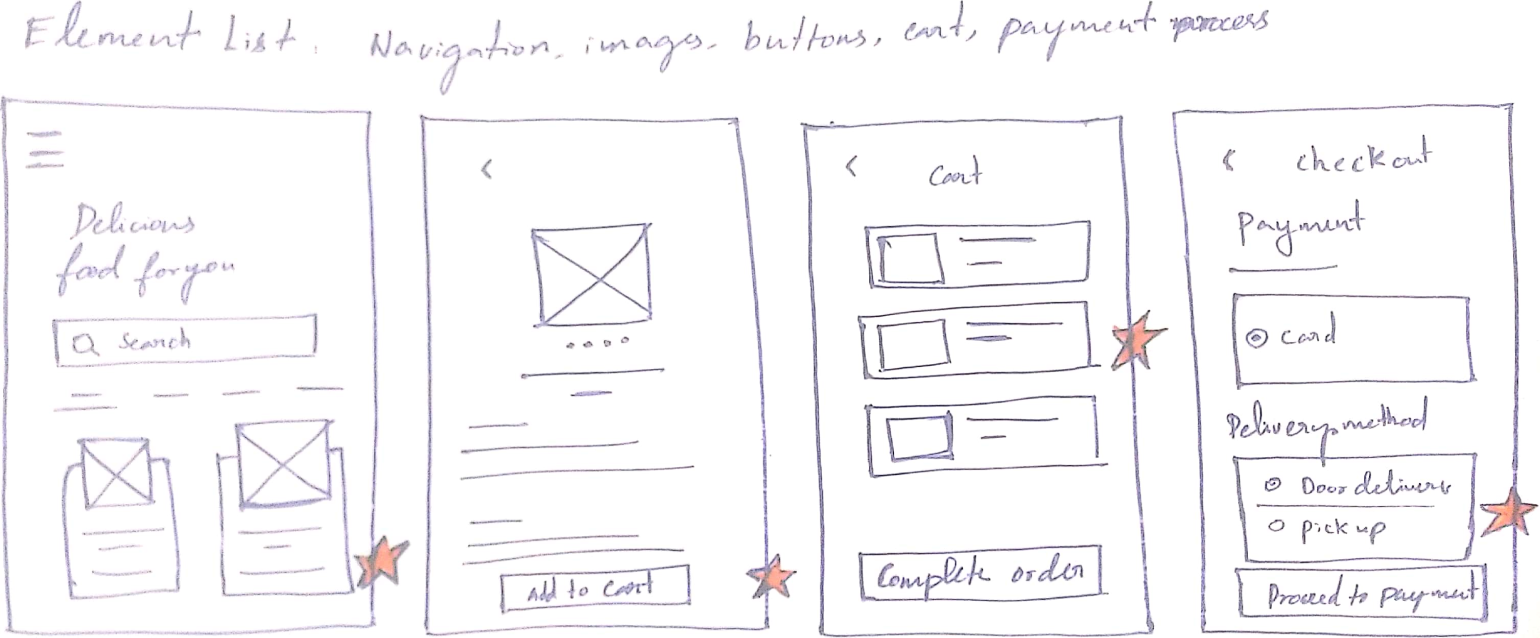 Element List. Navigation, images, buttons, cart, payment process
Delicious
food for you
Search
Add to Cart
Cart
Complete order
checkout
Payment
Card
Delivery method
Door delivery
Pick up
Proceed to payment